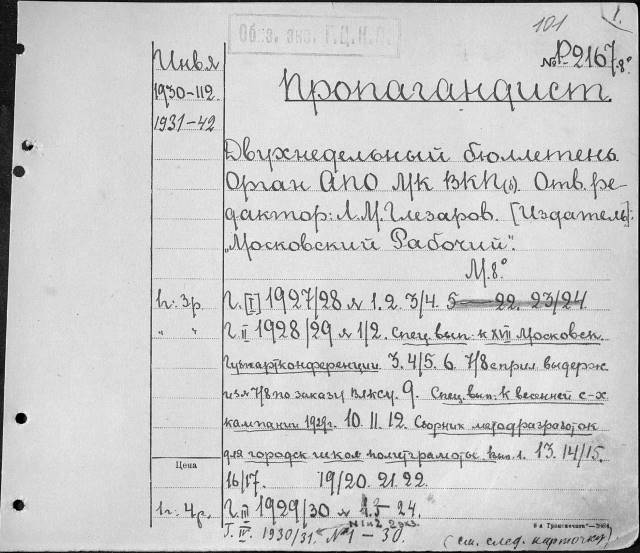 101 1.
№ Р-2167 8º
Инвя
1930-112
1931-42
Пропагандист.
Двухнедельный бюллетень.
Орган АПО МК ВКП(б). Отв. ре-
дактор: Л.М. Глезаров. [Издатель]:
"Московский Рабочий".
М. 8º
Г. [I] 1927/28 № 1. 2. 3/4. 5 — 22. 23/24
Г. II 1928/29 № 1/2. Спец. вып. к XVII Московск.
Губпартконференции 3. 4/5. 6. 7/8 с прил выдерж
из № 7/8 по заказу ВЛКСУ. 9. Спец. вып. к весенней с-х
кампании 1929г. 10. 11. 12. Сборник методразработок
для городск школ политграмоты вып. 1. 13. 14/15.
Цена
16/17. 19/20. 21. 22.
1г. 4р. Г. III 1929/30 № 1. 3- 24.
Г. IV. 1930/31. № 1 - 30.
(см. след. карточку)